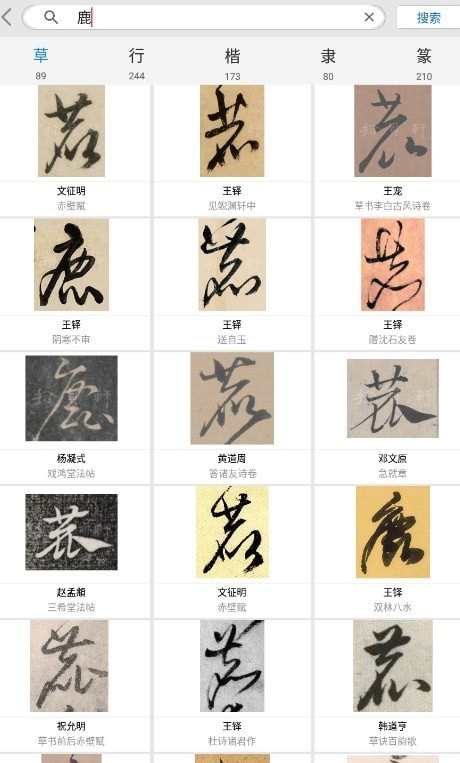 鹿
搜索
草 行 楷 隶 篆
89 244 173 80 210
文征明 王铎 王宠
赤壁赋 见兢渊轩中 草书李白古风诗卷
王铎 王铎 王铎
阴寒不审 送自玉 赠沈石友卷
杨凝式 黄道周 邓文原
戏鸿堂法帖 答诸友诗卷 急就章
赵孟頫 文征明 王铎
三希堂法帖 赤壁赋 双林八水
祝允明 王铎 韩道亨
草书前后赤壁赋 杜诗诸君作 草诀百韵歌